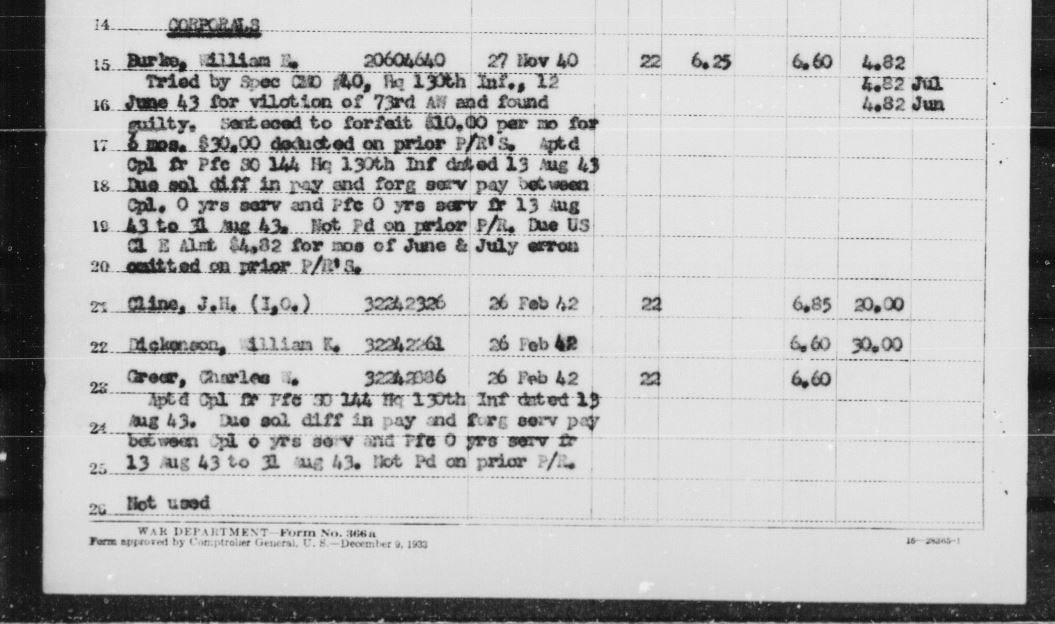 14 CORPORALS
15 Burke, William E. 20604640 27 Nov 40 22 6.25 6.60 4.82
Tried by Spec CMO #40, Hq 130th Inf., 12 4.82 Jul
16 June 43 for vilotion of 73rd AW and found 4.82 Jun
guilty. Senteced to forfeit $10.00 per mo for
17 6 mos. $30.00 deducted on prior P/R'S. Aptd
Cpl fr Pfc SO 144 Hq 130th Inf dated 13 Aug 43
18 Due sol diff in pay and forg serv pay between
Cpl. 0 yrs serv and Pfc 0 yrs serv fr 13 Aug
19 43 to 31 Aug 43. Not Pd on prior P/R. Due US
Cl E Almt $4.82 for mos of June & July erron
20 omitted on prior P/R'S.
21 Cline, J.H. (I.O.) 32242326 26 Feb 42 22 6.85 20.00
22 Dickenson, William K. 32242261 26 Feb 42 6.60 30.00
23 Greer, Charles W. 26 Feb 42 22 6.60
Aptd Cpl fr Pfc SO 144 Hq 130th Inf dated 13
24 Aug 43. Due sol diff in pay and forg serv pay
between Cpl o yrs serv and Pfc 0 yrs serv fr
25 13 Aug 43 to 31 Aug 43. Not Pd on prior P/R.
26 Not used
WAR DEPARTMENT—Form No. 366a
Form approved by Comptroller General, U. S.—December 9, 1933 16—28365-1